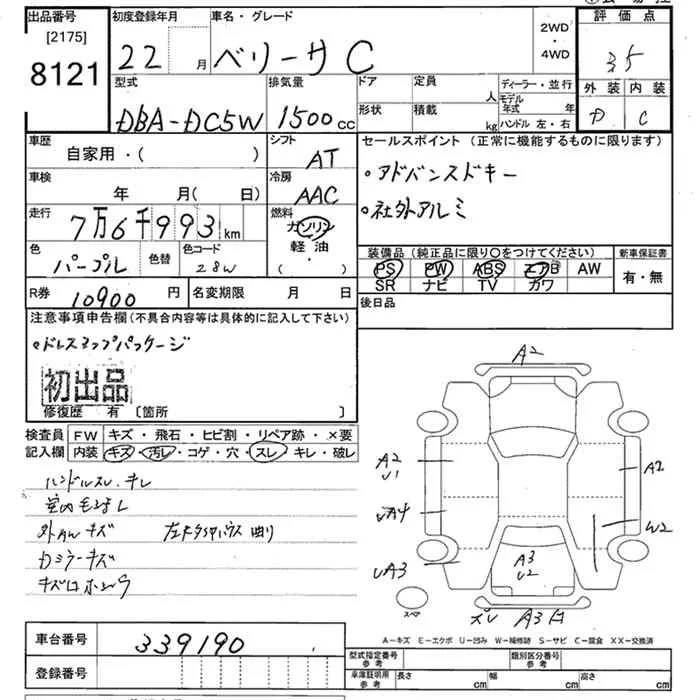 出品番号 初度登録年月 車名・グレード 評価点
[2175] 22 月 ベリーサ C 2WD・4WD 3.5
8121 型式 排気量 ドア 定員 人 ディーラー・並行 外装 内装
DBA-DC5W 1500cc 形状 積載 kg モデル年式 年 D C
ハンドル 左・右
車歴 シフト セールスポイント (正常に機能するものに限ります)
自家用・( ) AT ・アドバンスドキー
車検 冷房
年 月( 日) AAC ・社外アルミ
走行 燃料
7万6千993km ガソリン
軽油
( )
色 色替 色コード 装備品 (純正品に限り○をつけてください) 新車保証書
パープル 28W PS PW ABS エアB AW 有・無
SR ナビ TV カワ
R券 10900 円 名変期限 月 日 後日品
注意事項申告欄(不具合内容等は具体的に記入して下さい)
・ドレスアップパッケージ
初出品
修復歴 有 [箇所 ]
A2
検査員 FW キズ・飛石・ヒビ割・リペア跡・×要
記入欄 内装 キズ・汚レ・コゲ・穴・スレ・キレ・破レ
A2 U1 A2
ハンドルスレ・キレ
外AWキズ
A4 W2
Dミラーキズ
UA3 A3 U2
スペア
A3
A-キズ E-エクボ U-凹み W-補修跡 S-サビ C-腐食 XX-交換済
車台番号 339190 型式指定番号 参考 類別区分番号 参考
登録番号 車庫証明用 参考 長さ cm 幅 cm 高さ cm